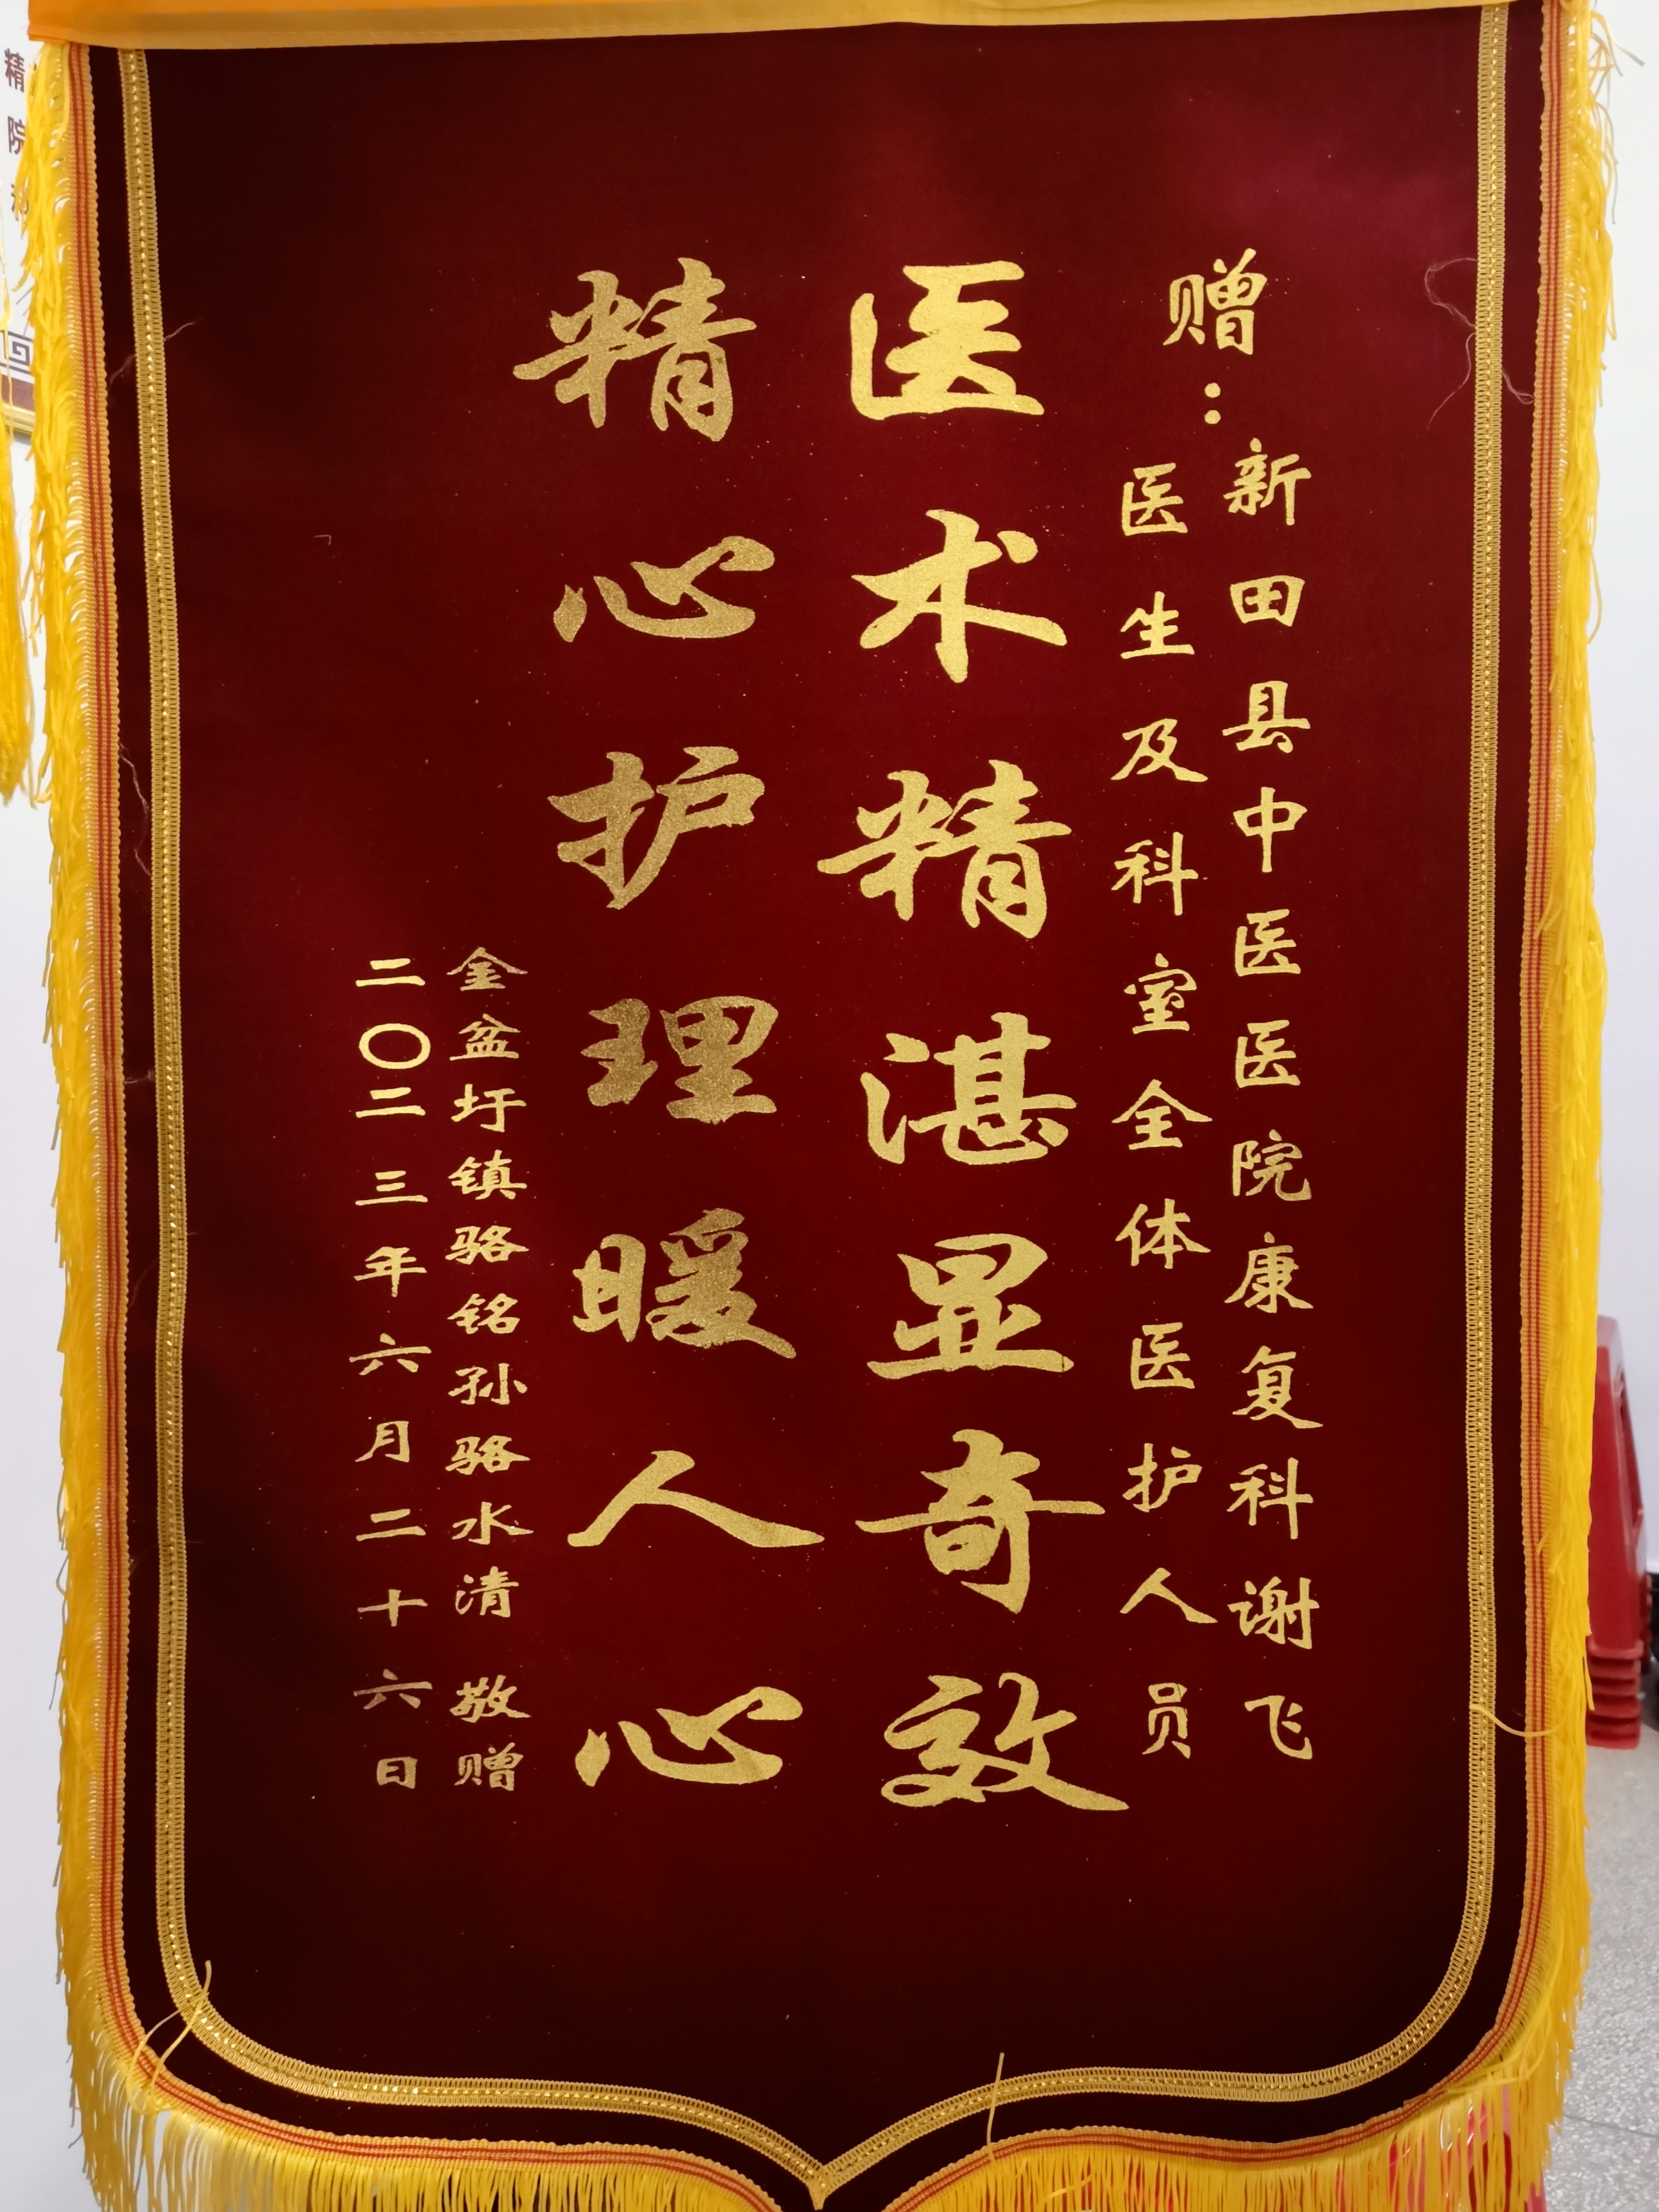 赠：
新田县中医医院康复科谢飞
医生及科室全体医护人员
医术精湛显奇效
精心护理暖人心
金盆圩镇骆铭孙骆水清 敬赠
二〇二三年六月二十六日
精
院